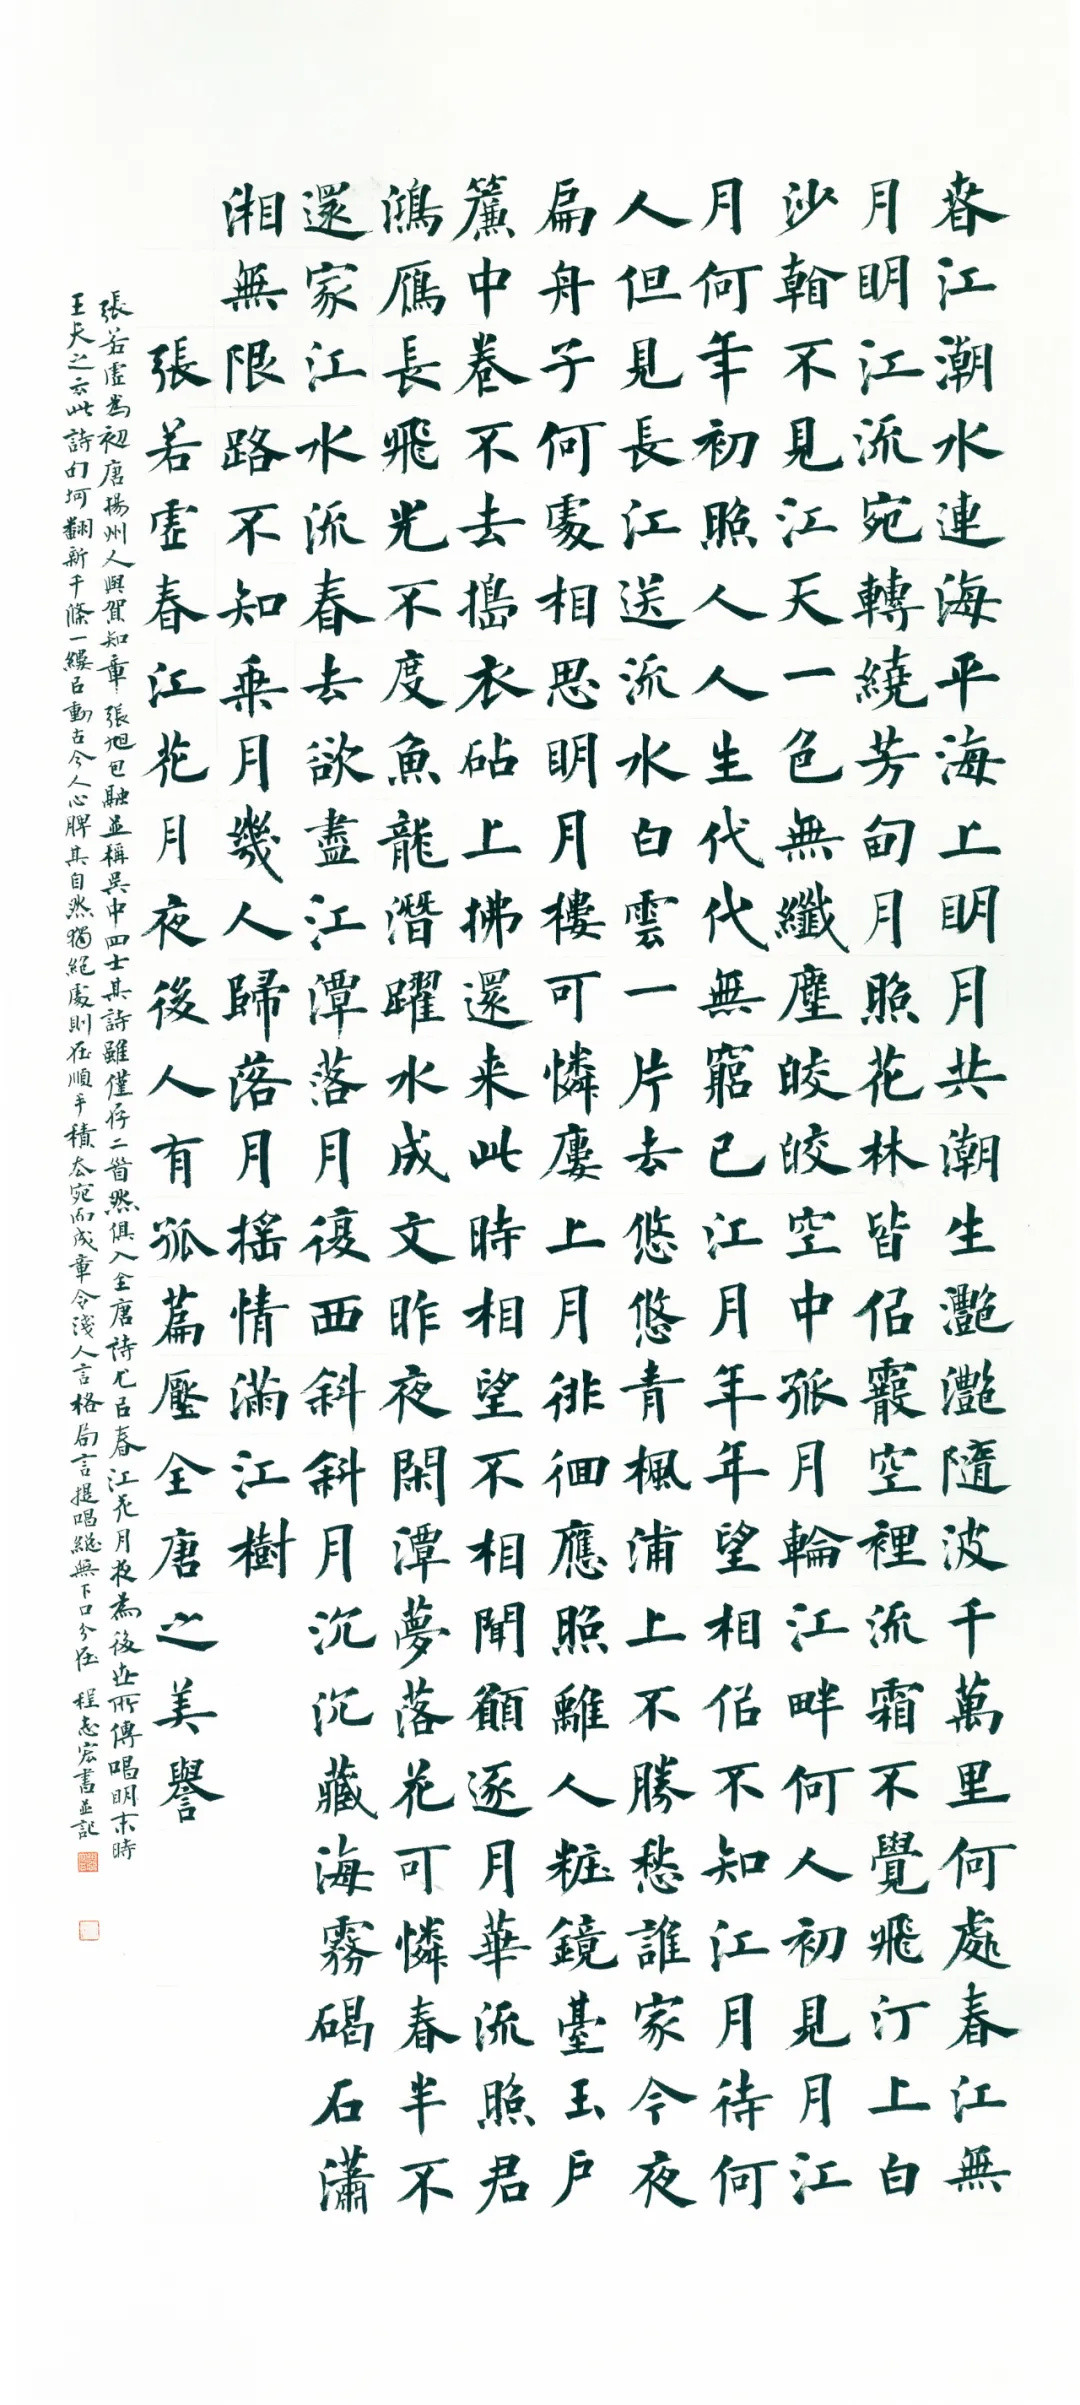 春江潮水連海平海上明月共潮生灔灔隨波千萬里何處春江無
月明江流宛轉繞芳甸月照花林皆佀霰空裡流霜不覺飛汀上白
沙翰不見江天一色無纖塵皎皎空中孤月輪江畔何人初見月江
月何年初照人人生代代無窮已江月年年望相佀不知江月待何
人但見長江送流水白雲一片去悠悠青楓浦上不勝愁誰家今夜
扁舟子何處相思明月樓可憐廔上月徘徊應照離人粧鏡臺玉戶
簾中卷不去搗衣砧上拂還来此時相望不相聞願逐月華流照君
鴻雁長飛光不度魚龍潛躍水成文昨夜閑潭夢落花可憐春半不
還家江水流春去欲盡江潭落月復西斜斜月沉沉藏海霧碣石瀟
湘無限路不知乗月幾人歸落月搖情滿江樹
張若虛春江花月夜後人有孤篇壓全唐之美譽
張若虛為初唐揚州人與賀知章張旭包融並稱吳中四士其詩雖僅存二首然俱入全唐詩尤㠯春江花月夜為後世所傳唱明末時
王夫之云此詩句句翻新千條一縷㠯動古今人心脾其自然獨絕處則在順手積去宛而成章令淺人言格局言提唱總無下口分在 程志宏書並記